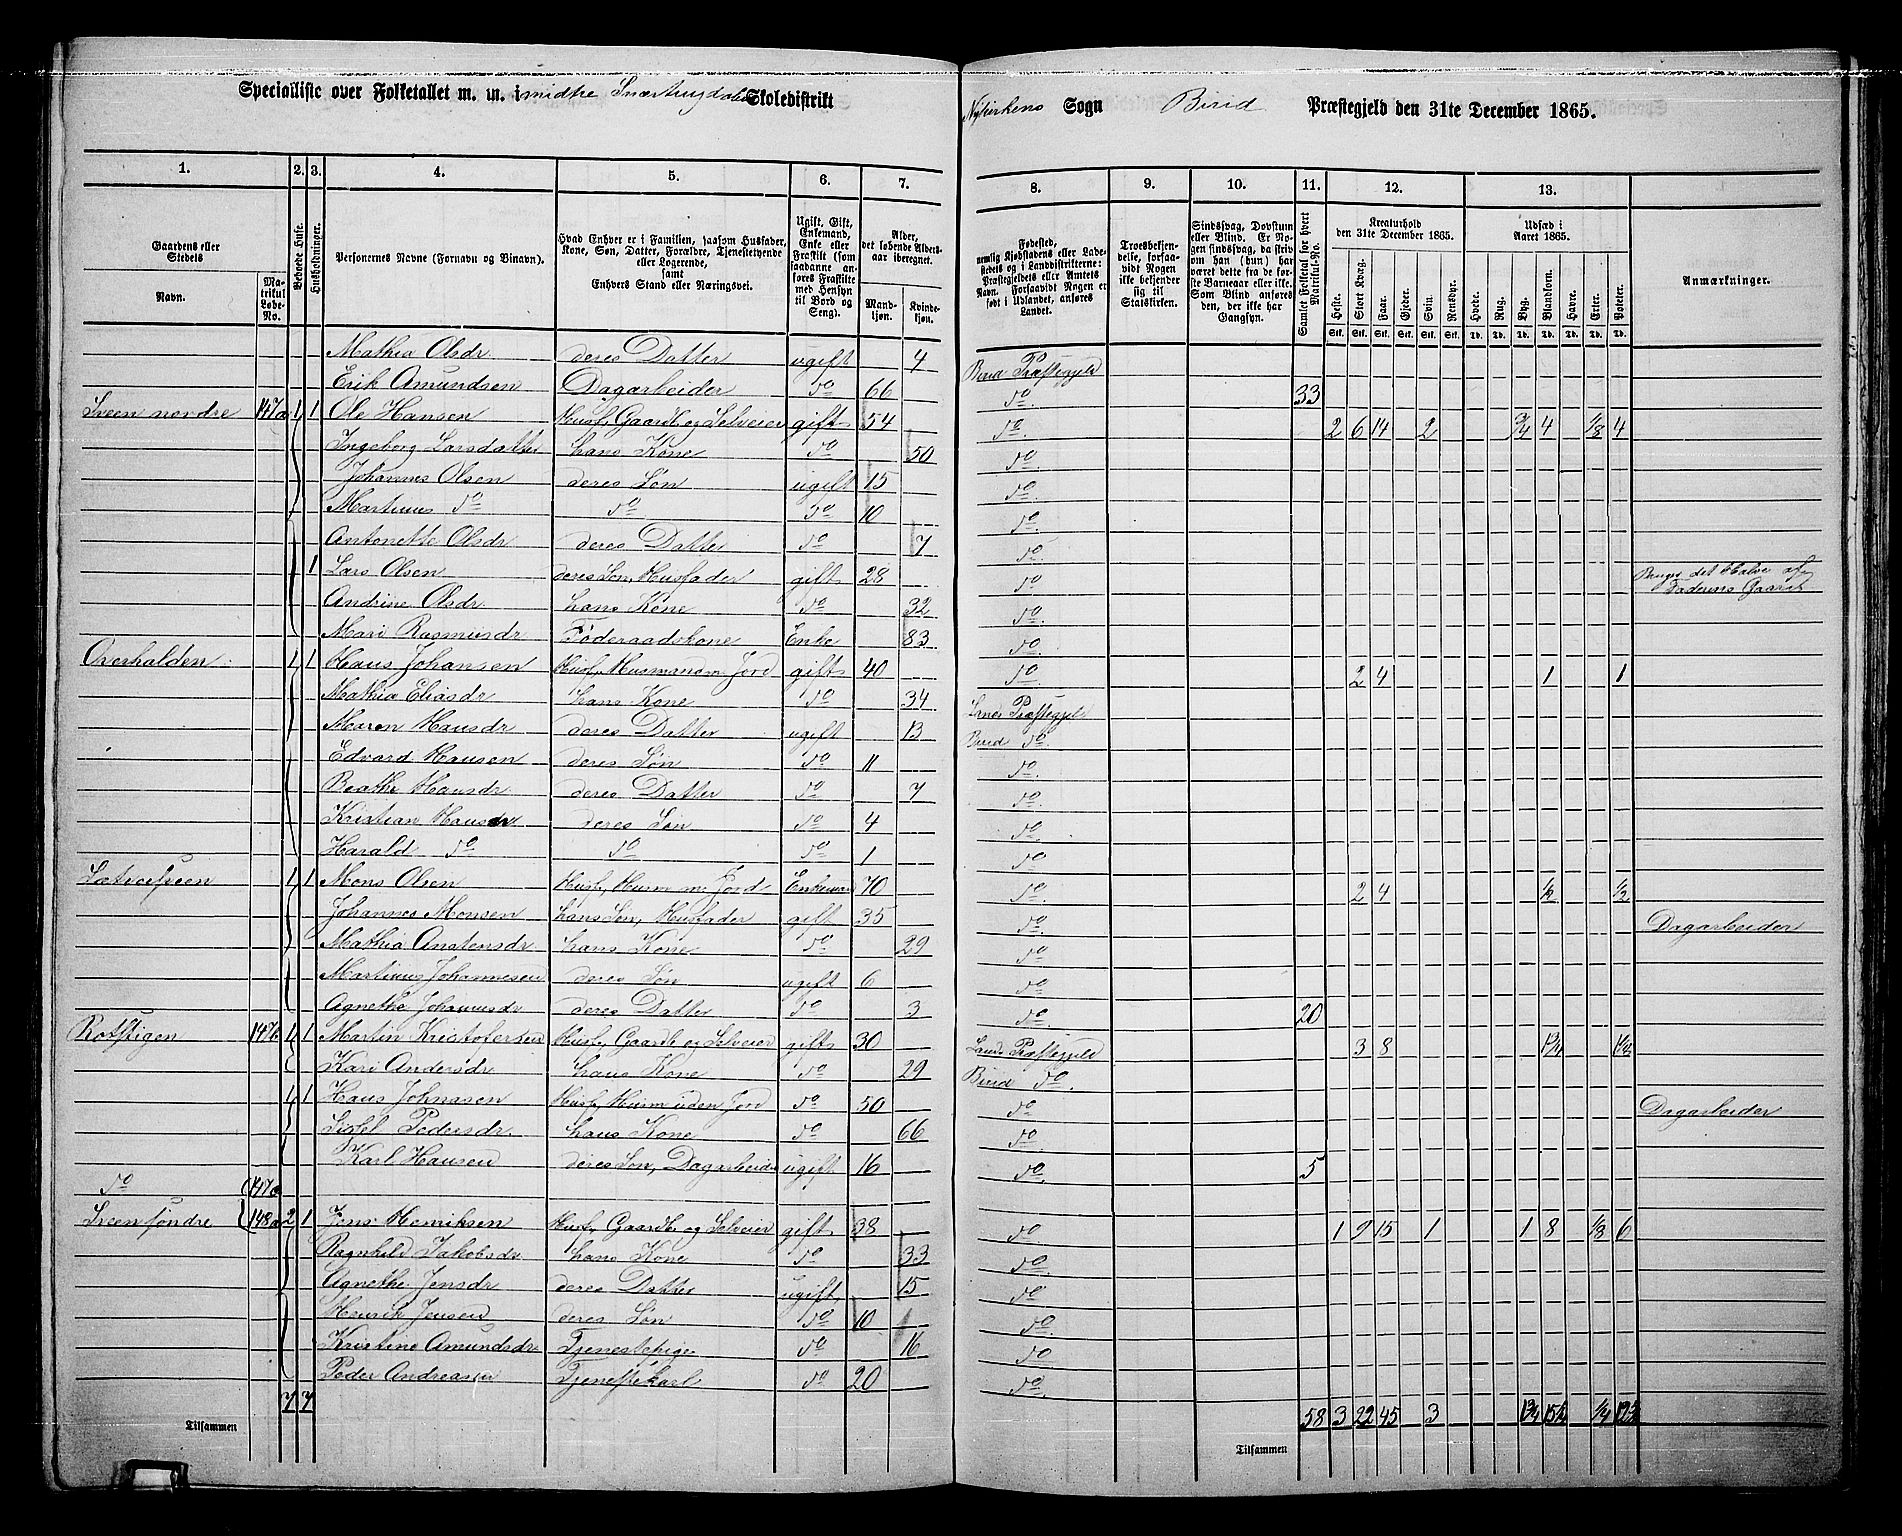 Specialliste over Folketallet m. m. i midtre Snærtingdalens Skoledistrikt Nykirkens Sogn Birid Præstegjeld den 31te December 1865.
1. 2. 3. 4. 5. 6. 7. 8. 9. 10. 11. 12. 13.
Gaardens eller Stedets Navn. Matrikul Løbe-No. Beboede Huse. Husholdninger. Personernes Navne (Fornavn og Binavn). Hvad Enhver er i Familien, saasom Husfader, Kone, Søn, Datter, Forældre, Tjenestetyende eller Logerende, samt Enhvers Stand eller Næringsvei. Ugift, Gift, Enkemand, Enke eller Fraskilt (som saadanne anføres Fraskilte med Hensyn til Bord og Seng). Alder, det løbende Alders-aar iberegnet. Mandkjøn. Kvindekjøn.
Fødested, nemlig Kjøbstadens eller Ladestedets og i Landdistrikterne: Præstegjeldets eller Amtets Navn. Forsaavidt Nogen er født i Udlandet, anføres Landet. Troesbekjendelse, forsaavidt Nogen ikke bekjender sig til Statskirken. Sindssvag, Døvstum eller Blind. Er Nogen sindssvag, da skrives om han (hun) har været dette fra de første Barneaar eller ikke. Som Blind anføres den, der ikke har Gangsyn. Samlet Folketal for hvert Matrikul-No. Kreaturhold den 31te December 1865. Heste. Stort Kvæg. Faar. Gjeder. Svin. Rensdyr. Udsæd i Aaret 1865. Hvede. Rug. Byg. Blandkorn. Havre. Erter. Poteter. Anmærkninger.
Stk. Stk. Stk. Stk. Stk. Stk. Td. Td. Td. Td. Td. Td. Td.
Mathia Olsdr deres Datter ugift 4 Birid Præstegjeld
Erik Amundsen Dagarbeider do 66 do 33
Sveen nordre 147a 1 1 Ole Hansen Husf, Gaardb og Selveier gift 54 do 2 6 14 2 3/4 4 1/8 4
Ingeborg Larsdatter hans Kone do 50 do
Johannes Olsen deres Søn ugift 15 do
Martinus do do do 10 do
Antonette Olsdr deres Datter do 7 do
1 Lars Olsen deres Søn, Husfader gift 28 do Bruger det Halve af Faderens Gaard
Andrine Olsdr hans Kone do 32 do
Mari Rasmusdr Føderaadskone Enke 83 do
Overhalden 1 1 Hans Johansen Husf, Husmand m Jord gift 40 do 2 4 1 1
Mathia Eliasdr hans Kone do 34 Lands Præstegjeld
Maren Hansdr deres Datter ugift 13 Birid do
Edvard Hansen deres Søn do 11 do
Beathe Hansdr deres Datter do 7 do
Kristian Hansen deres Søn do 4 do
Harald do do do 1 do
1 1 Mons Olsen Husf, Husm m Jord Enkemand 70 do 2 4 1/2 1/2
Johannes Monsen hans Søn, Husfader gift 35 do Dagarbeider
Mathia Anstensdr hans Kone do 29 do
Martinus Johannesen deres Søn ugift 6 do
Agnethe Johannesdr deres Datter do 3 do 20
Rotstigen 147b 1 1 Martin Kristofersen Husf, Gaardb og Selveier gift 30 Lands Præstegjeld 3 8 1 1/4 1 1/2
Kari Andersdr hans Kone do 29 Birid do
1 1 Hans Johnasen Husf, Husm uden Jord do 50 do Dagarbeider
Sidsel Pedersdr hans Kone do 66 do
Karl Hansen deres Søn, Dagarbeider ugift 16 do 5
do 147c
Sveen søndre 148a 2 1 Jens Henriksen Husf, Gaardb og Selveier gift 38 do 1 9 15 1 1 8 1/8 6
Ragnhild Jakobsdr hans Kone do 33 do
Agnethe Jensdr deres Datter ugift 15 do
Henrik Jensen deres Søn do 10 do
Kristine Amundsdr Tjenestepige do 16 do
Peder Andreassen Tjenestekarl do 20 do
7 7
Tilsammen Tilsammen 58 3 22 45 3 1 3/4 15 1/4 1/4